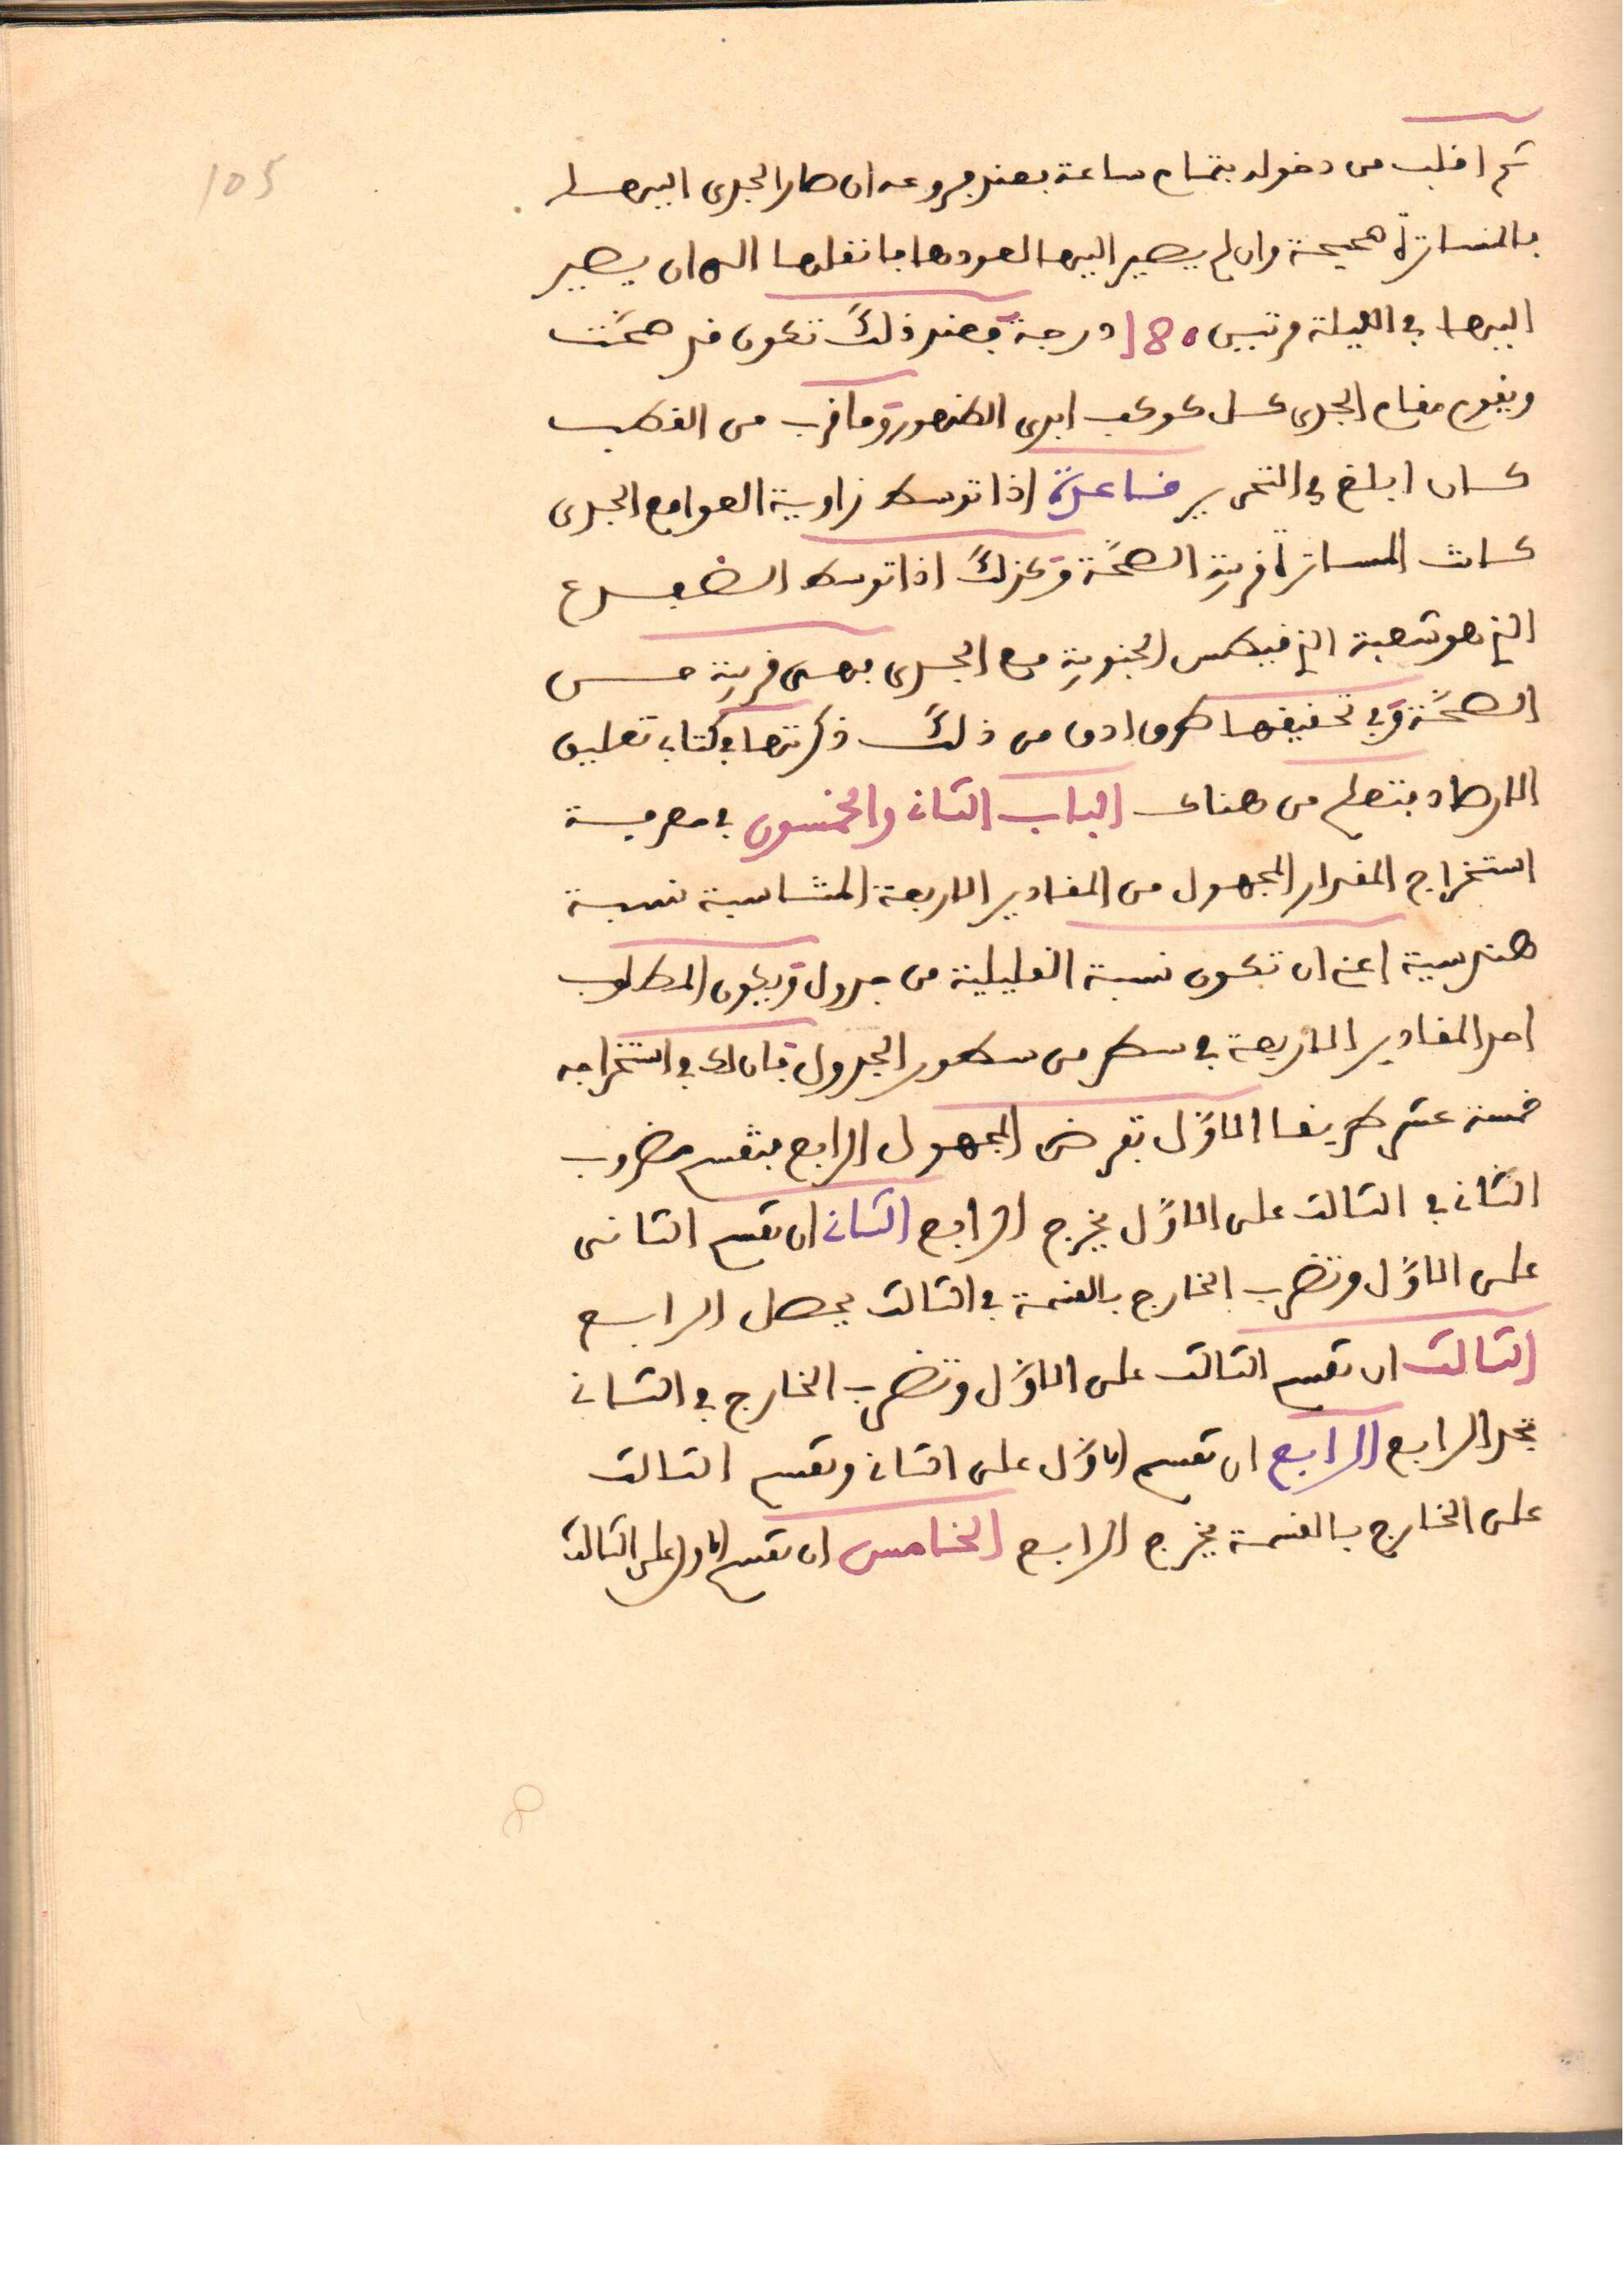 105
ثم اقلب من دخوله بتمام ساعة بعند بروعه ان صار الجدى اليها
بالمساترة صحيحة وان لم يصير اليها لعودها بانقلها الى ان يصير
اليها في الليلة مرتين 180 درجة فعند ذلك تكون قد صحّت
ويقوم مقام الجدى كل كوكب ابدى الظهور وما قرب من القطب
كان ابلغ في التحرير قاعدة اذا توسط زاوية العوا مع الجدى
كانت المساترة قريبة الصحّة وكذلك اذا توسط الضفدع
الذي هو شعبة الذي فيطس الجنوبية مع الجدى فهى قريبة من
الصحّة وفي تحقيقها طرق ادق من ذلك ذكرتها في كتاب تعليق
الارصاد فتعلم من هناك الباب الثاني والخمسون في معرفة
استخراج المقدار المجهول من المقادير الاربعة المتناسبة نسبة
هندسية اعني ان تكون نسبة القليلية من جدول ويكون المطلوب
احد المقادير الاربعة في سطر من سطور الجدول فان لك في استخراجه
خمسة عشر طريقا الاوّل بفرض المجهول الرابع فتقسم مضروب
الثاني في الثالث على الاوّل يخرج الرابع الثاني ان تقسم الثانى
على الاوّل وتضرب الخارج بالقسمة في الثالث يحصل الرابع
الثالث ان تقسم الثالث على الاوّل وتضرب الخارج في الثاني
تجد الرابع الرابع ان تقسم الاوّل على الثاني وتقسم الثالث
على الخارج بالقسمة يخرج الرابع الخامس ان تقسم الاول على الثالث